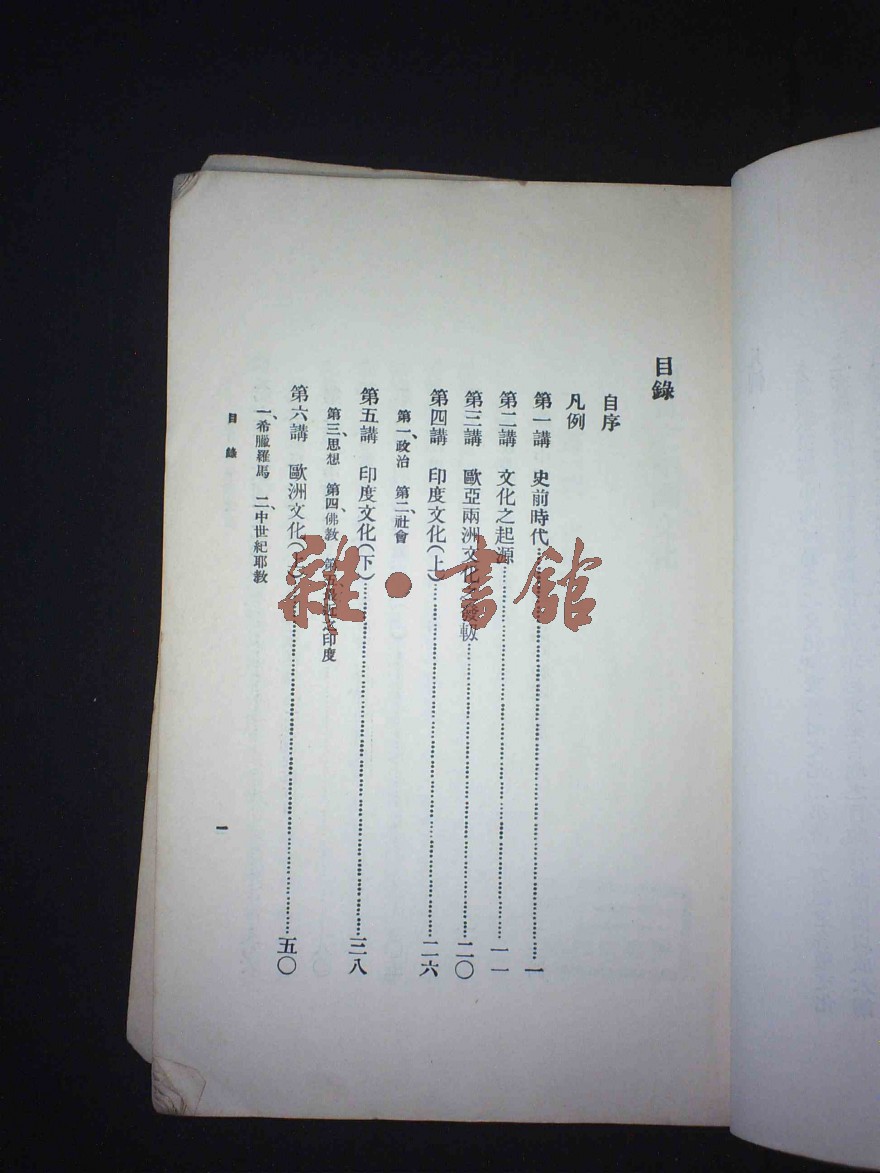 目錄
自序
凡例
第一講　史前時代……一
第二講　文化之起源……一一
第三講　歐亞兩洲文化之發軔……二〇
第四講　印度文化(上)……二六
第一、政治　第二、社會
第五講　印度文化(下)……三八
第三、思想　第四、佛教　第五、最近之印度
第六講　歐洲文化(上)……五〇
一、希臘羅馬　二、中世紀耶教
目錄
一
雜·書館